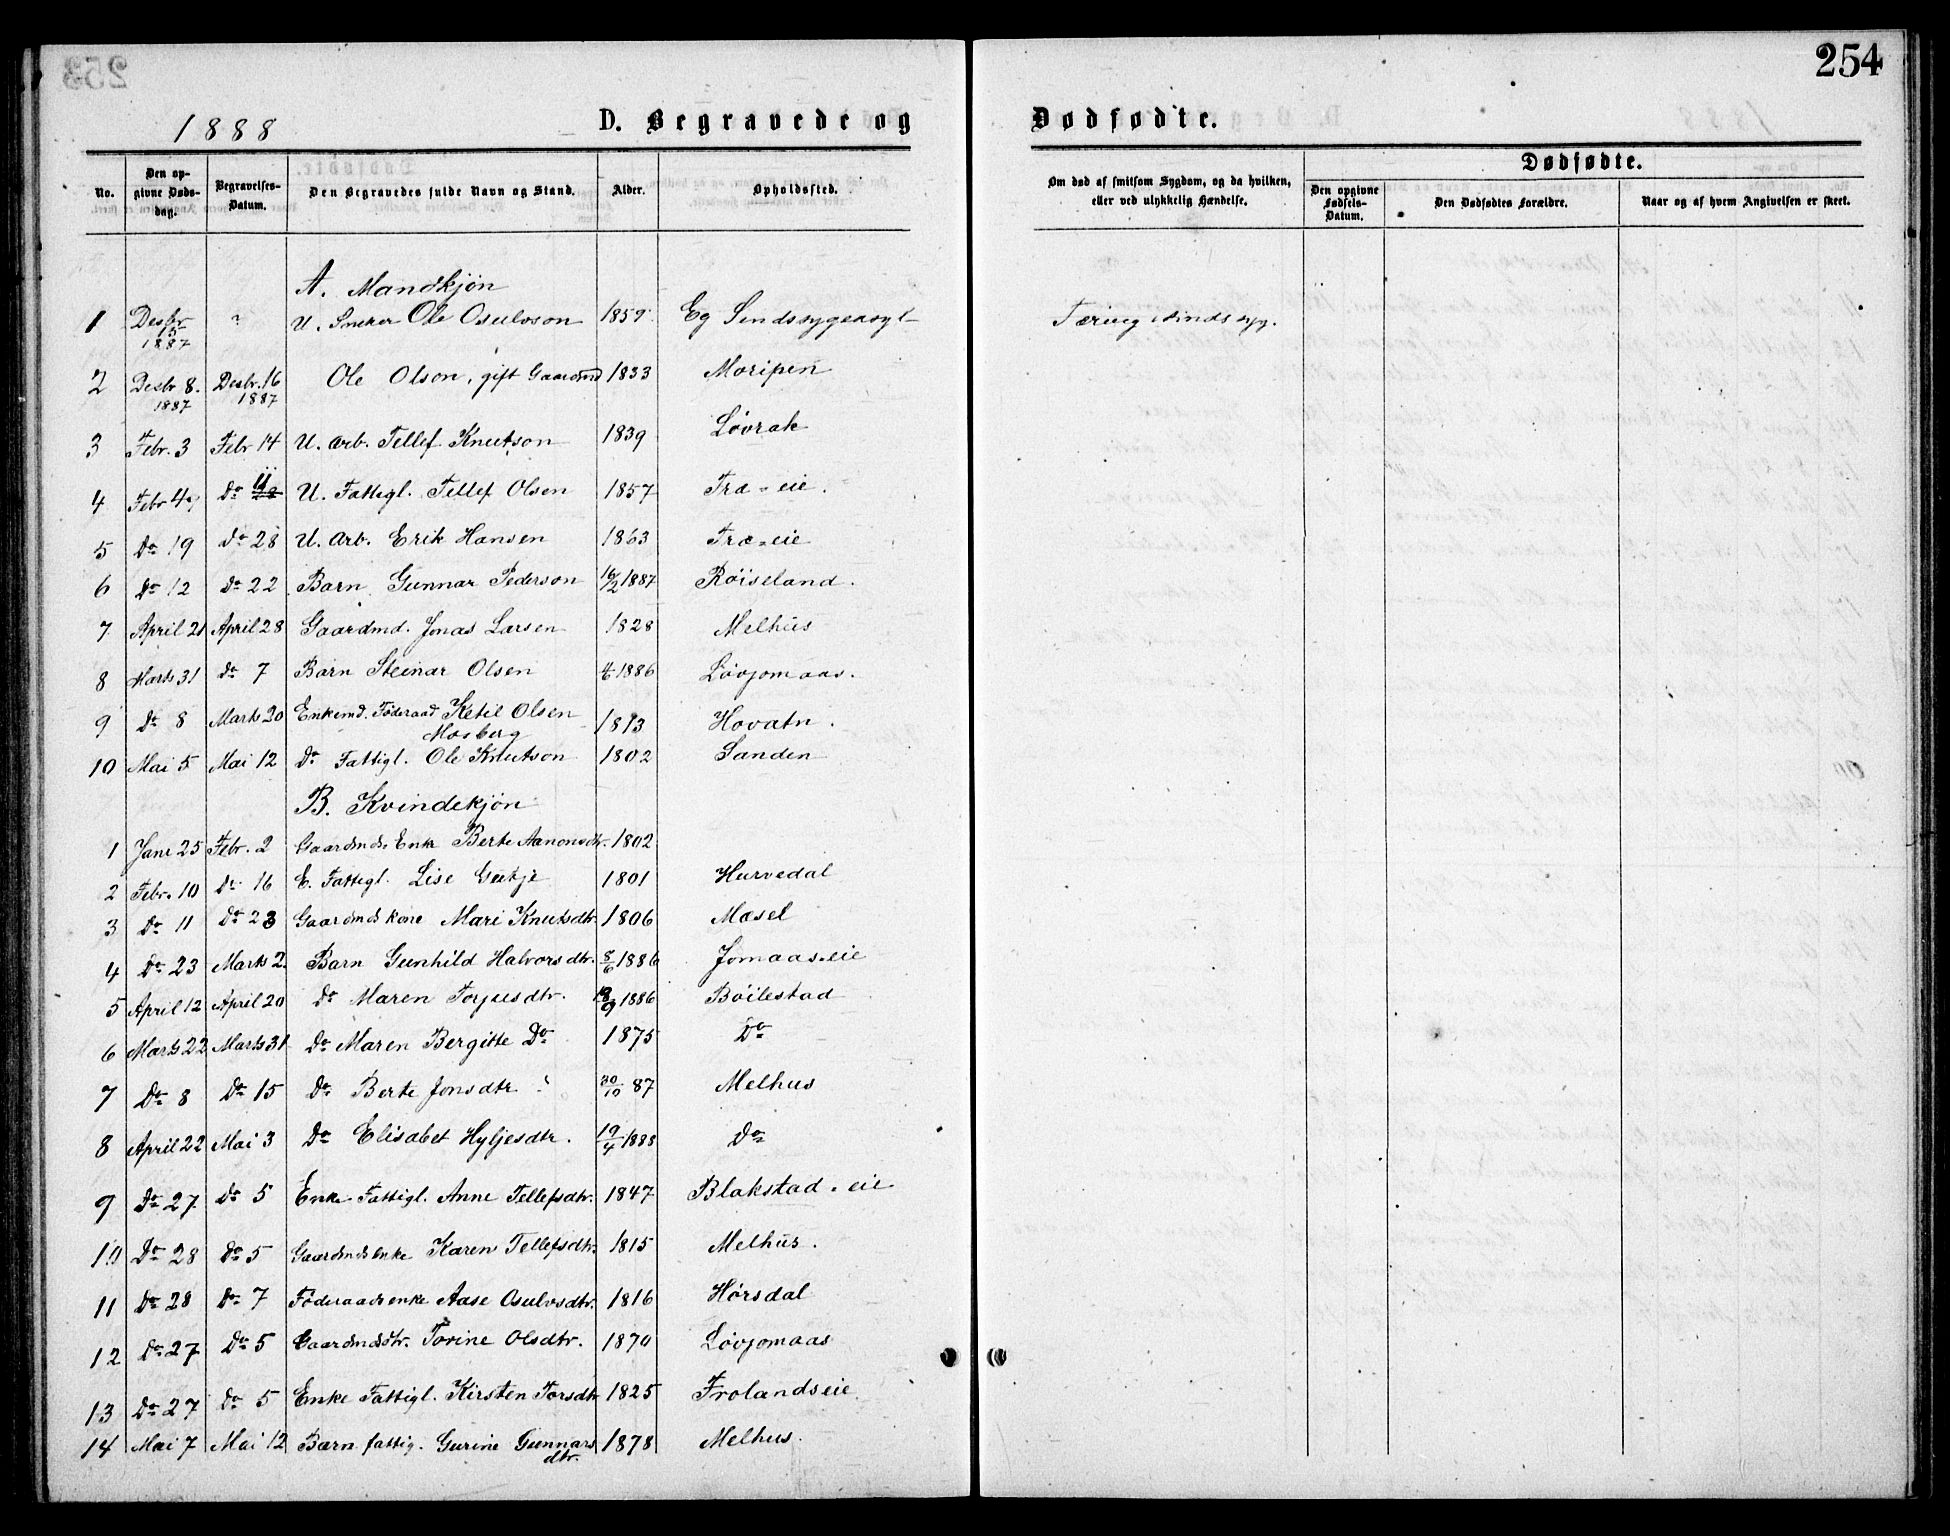 254
1888
D. Begravede og Dødfødte.
No. Den opgivne Døds-dag. Begravelses-Datum. Den Begravedes fulde Navn og Stand. Alder. Opholdssted. Om død af smitsom Sygdom, og da hvilken, eller ved ulykkelig Hændelse. Dødfødte. Den opgivne Fødsels-Datum. Den Dødfødtes Forældre. Naar og af hvem Angivelsen er skeet.
A. Mandkjøn
1 Desbr 5 1887 ? U. Sneker Ole Osulvson 1859 Eg Sindssygeasyl Tæring, sindssyg.
2 Desbr 8. 1887 Desbr. 16 1887 Ole Olson, gift Gaardmd 1833 Moripen
3 Febr. 3 Febr 14 U. Arb. Tellef Knutson 1839 Løvrak
4 Febr 4 Do 11 U. Fattigl. Tellef Olsen 1857 Træ-eie.
5 Do 19 Do 28 U. Arb. Erik Hansen 1863 Træ-eie
6 Do 12 Do 22 Barn Gunnar Pederson 16/2 1887 Røiseland.
7 April 21 April 28 Gaardmd. Jonas Larsen 1828 Melhus
8 Marts 31 Do 7 Barn Steinar Olsen 4/6 1886 Løvjomaas.
9 Do 8 Marts 20 Enkemd. Føderaad Ketil Olsen Mosberg 1813 Hovatn.
10 Mai 5 Mai 12 Do Fattigl. Ole Knutson 1802 Sanden
B. Kvindekjøn
1 Janr 25 Febr. 2 Gaardmds Enke Berte Aanonsdtr. 1802
2 Febr. 10 Do 16 E. Fattigl. Lise 1801 Hurvedal
3 Do 11 Do 23 Gaardmds kone Mari Knutsdtr. 1806 Mæsel
4 Do 23 Marts 2 Barn Gunhild Halvorsdtr. 8/6 1886 Jomaas-eie
5 April 12 April 20 Do Maren Torjusdtr. 18/9 1886 Bøilestad
6 Marts 22 Marts 31 Do Maren Bergitte Do 1875 Do
7 Do 8 Do 15 Do Berte Jonsdtr 30/10 87 Melhus
8 April 22 Mai 3 Do Elisabet Hyljesdtr. 19/4 1888 Do
9 Do 27 Do 5 Enke Fattigl. Anne Tellefsdtr. 1847 Blakstad-eie
10 Do 28 Do 5 Gaardmdsenke Karen Tellefsdtr. 1815 Melhus.
11 Do 28 Do 7 Føderaadsenke Aase Osulvsdtr. 1816 Hørsdal
12 Do 27 Do 5 Gaardmdsdtr. Torine Olsdtr. 1870 Løvjomaas
13 Do 27 Do 5 Enke Fattigl. Kirsten Torsdtr 1825 Frolandseie
14 Mai 7 Mai 12 Barn fattig. Gurine Gunnarsdtr. 1878 Melhus.